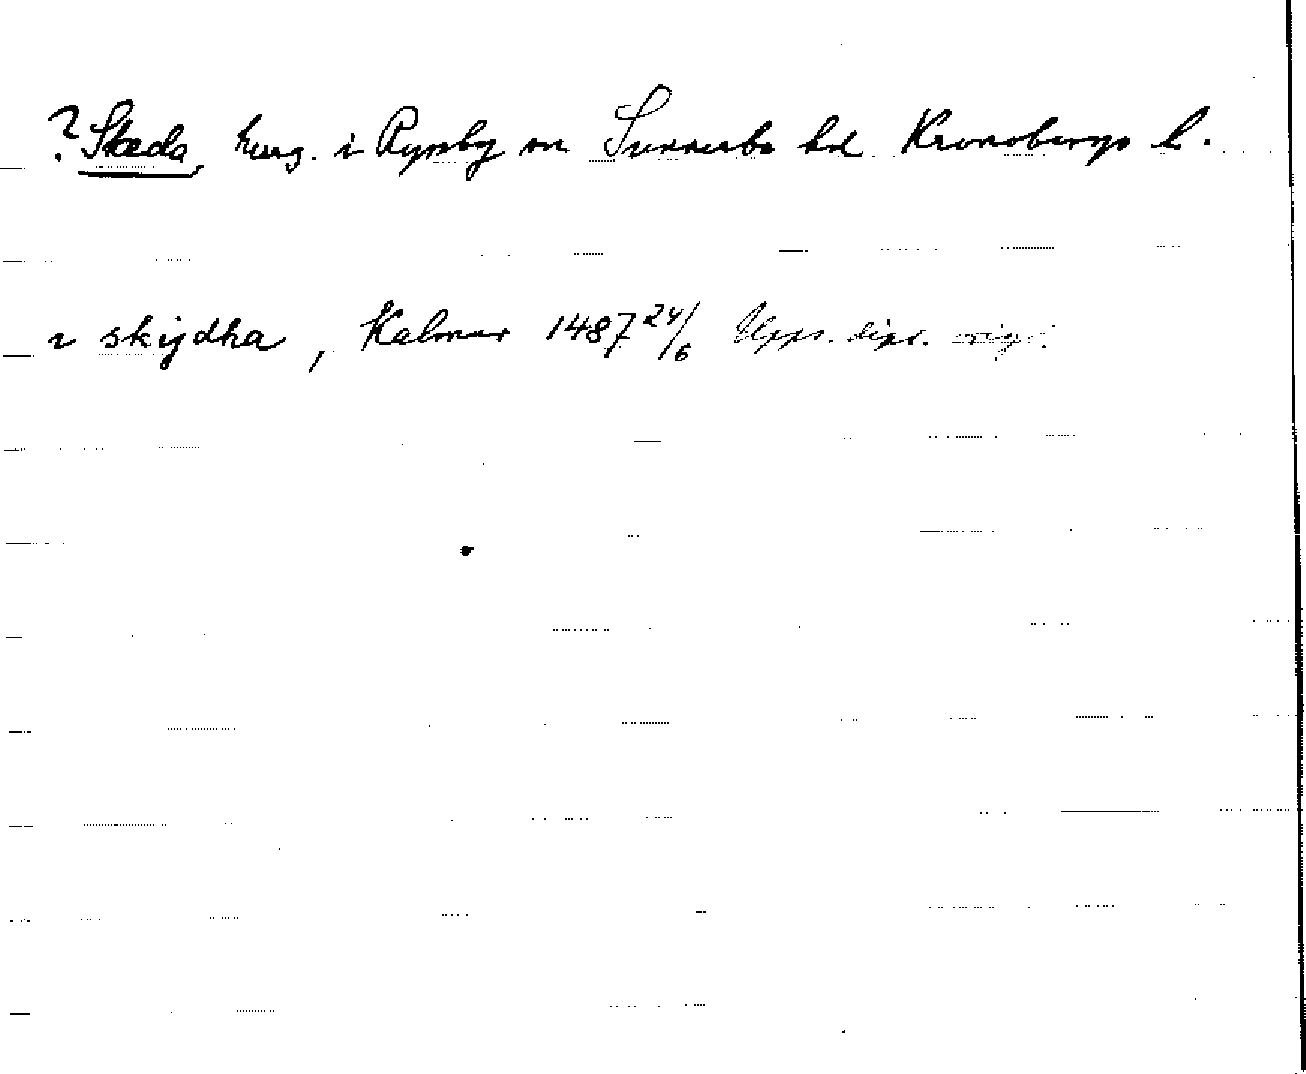 ? Skeda, herg. i Ryssby sn Sunnerbo hd Kronobergs l.
i skijdha, Kalmar 1487 24/6 Upps. dipl. orig.